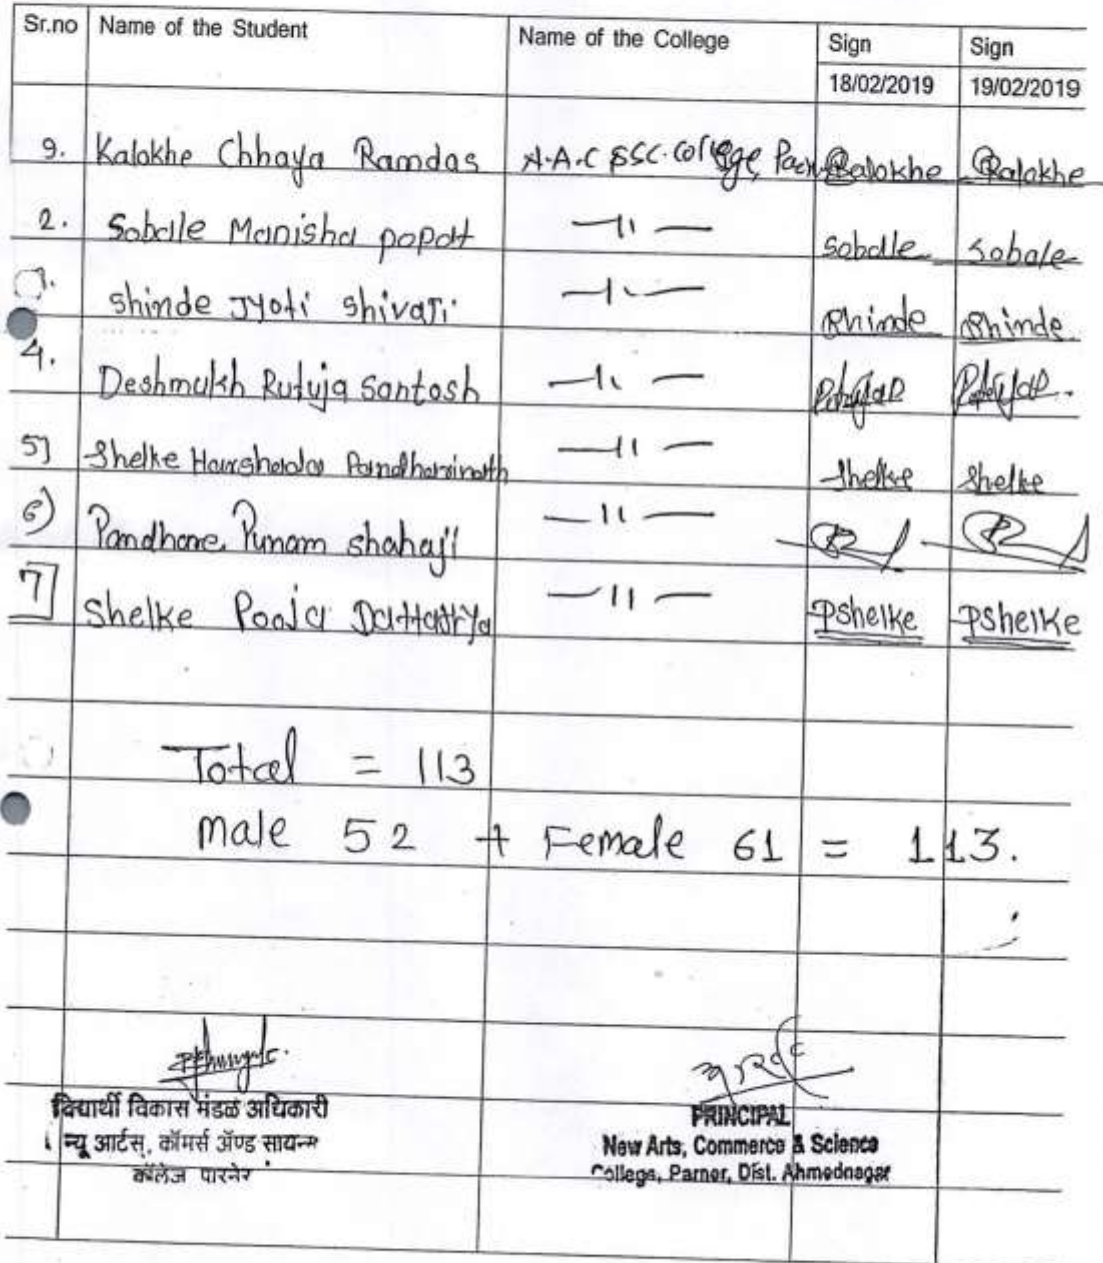 Sr.no Name of the Student Name of the College Sign Sign
18/02/2019 19/02/2019
9. Kalokhe Chhaya Ramdas A.A.C SSC. College, Kalokhe Kalokhe
2. Sobale Manisha popat —11— Sobale Sobale
shinde Jyoti shivaji —11— Shinde Shinde
4. Deshmukh Rutuja Santosh —11—
5] Shelke Harshada Pandharinath —11— Shelke Shelke
6) Pandhare Punam shahaji —11—
7] Shelke Pooja Dattatrya —11— PShelke PShelke
Total = 113
male 52 + Female 61 = 113.
विद्यार्थी विकास मंडळ अधिकारी
न्यू आर्टस्, कॉमर्स ॲण्ड सायन्स
कॉलेज पारनेर
PRINCIPAL
New Arts, Commerce & Science
College, Parner, Dist. Ahmednagar